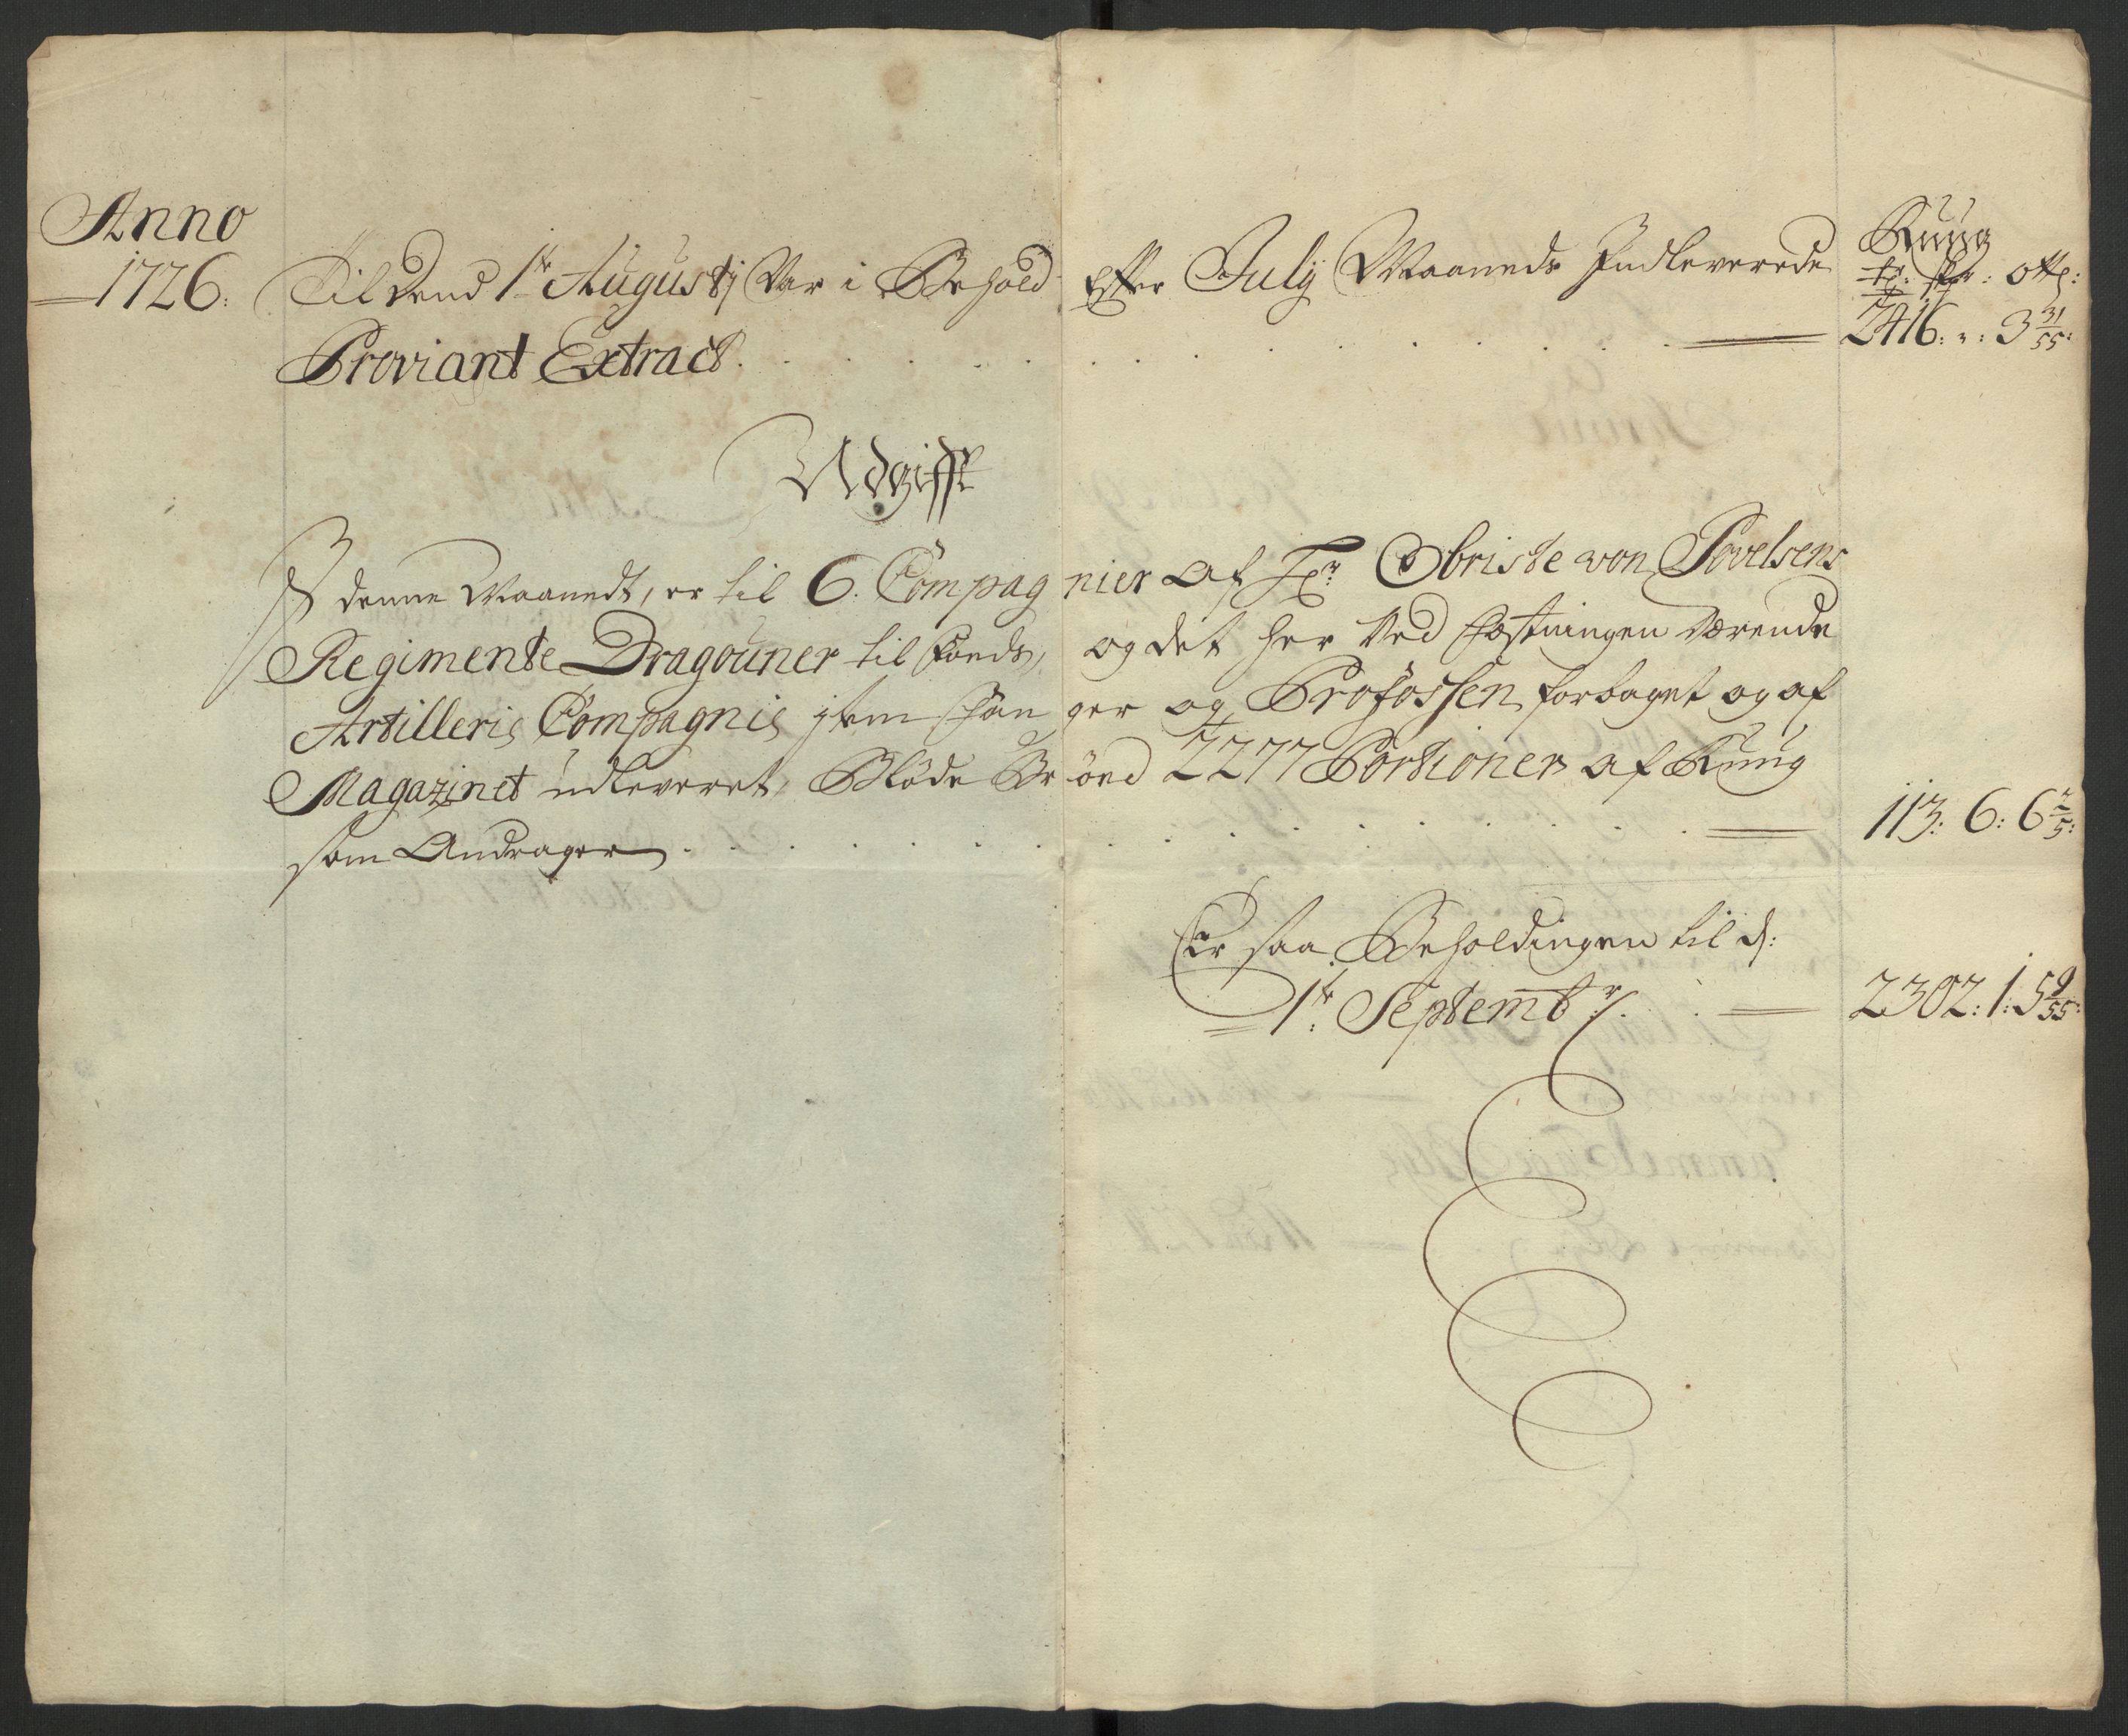 Anno
1726:
Til dend 1te Augustij Var i Behold Efter Julij Maaneds Indleverede
Proviant Extract.
Ruug
tr: skp: ottp:
2416: „: 3 31/55:
Udgifft
I denne Maanedt, er til 6. Compagnier af Hr: Obriste von Povelsens
Regimente Dragouner til Foeds, og det her Ved Fæstningen Værende
Artilleris Compagnie jtem Fanger og Profossen forbaget og af
Magazinet udleveret, Bløde Brøed 2277 Portioner af Ruug
som Andrager
113: 6: 6 2/5:
Er saa Beholdingen til d:
1te: Septembr:
2302: 1: 5 9/55: